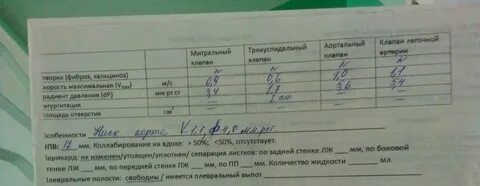 Митральный клапан Трикуспидальный клапан Аортальный клапан Клапан легочной артерии
створки (фиброз, кальциноз) N N N N
скорость максимальная (Vmax) м/с 0,9 0,6 1,0 1,1
градиент давления (dP) мм рт.ст 3,4 1,7 3,6 5,4
регургитация — I ст. — —
площадь отверстия см²
Особенности Нисх аорта V-1,1,
НПВ: 17 мм. Коллабирование на вдохе: > 50%, <50%, отсутствует.
Перикард: не изменен/утолщен/уплотнен/ сепарация листков: по задней стенке ЛЖ ___ мм, по боковой
стенке ЛЖ ___ мм, по передней стенке ПЖ ___ мм, по ПП ___ мм. Количество жидкости ___ мл.
Плевральные полости: свободны / имеется плевральный выпот